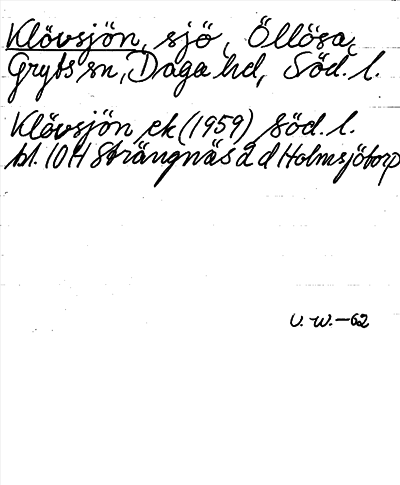 Klövsjön, sjö, Öllösa,
Gryts sn, Daga hd, Söd. l.
Klövsjön ek (1959) Söd. l.
bl. 10 H Strängnäs 2 d Holmsjötorp
U. W. -62